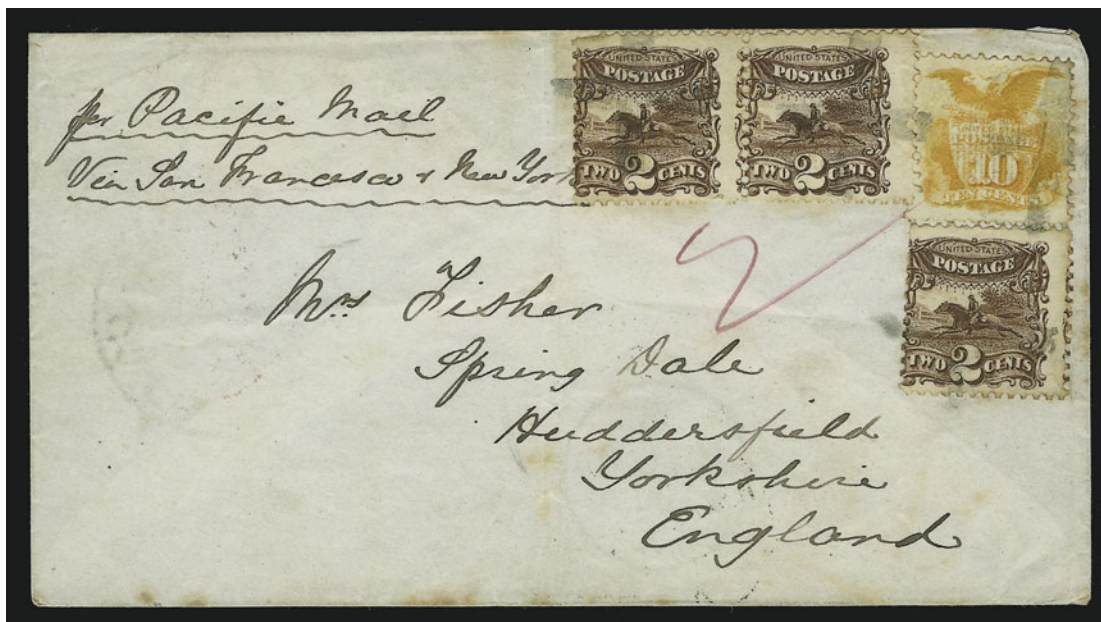 per Pacific Mail
Via San Francisco & New York
UNITED STATES
POSTAGE
TWO 2 CENTS
UNITED STATES
POSTAGE
TWO 2 CENTS
POSTAGE
10
TEN CENTS
UNITED STATES
POSTAGE
TWO 2 CENTS
Mrs Fisher
Spring Dale
Huddersfield
Yorkshire
England